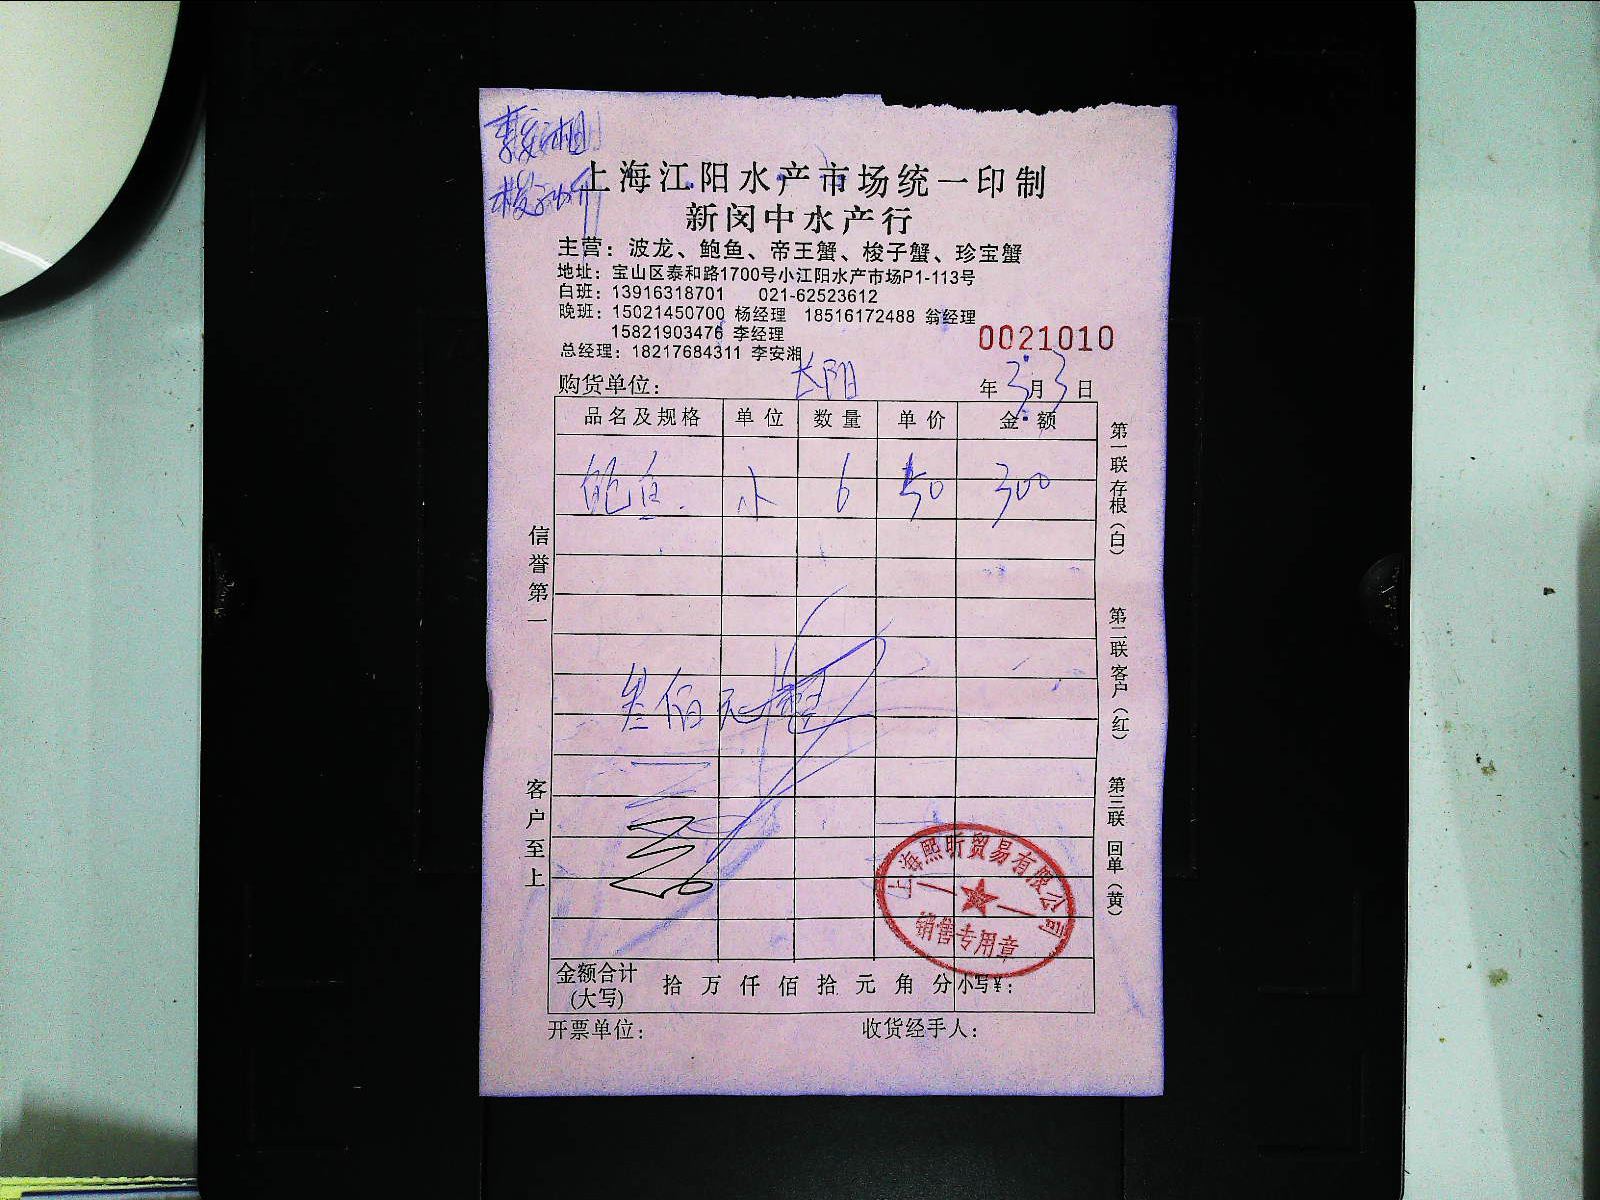 上海江阳水产市场统一印制
新闵中水产行
主营：波龙、鲍鱼、帝王蟹、梭子蟹、珍宝蟹
地址：宝山区泰和路1700号小江阳水产市场P1-113号
白班：13916318701 021-62523612
晚班：15021450700 杨经理 18516172488 翁经理
15821903476 李经理
总经理：18217684311 李安湘
0021010
购货单位： 长阳 年 3月 3日
品名及规格 单位 数量 单价 金额
鲍鱼 小 6 50 300
叁佰元
信誉第一
客户至上
第一联 存根（白）
第二联 客户（红）
第三联 回单（黄）
上海熙昕贸易有限公司
销售专用章
金额合计
(大写) 拾 万 仟 佰 拾 元 角 分 小写¥：
开票单位： 收货经手人：